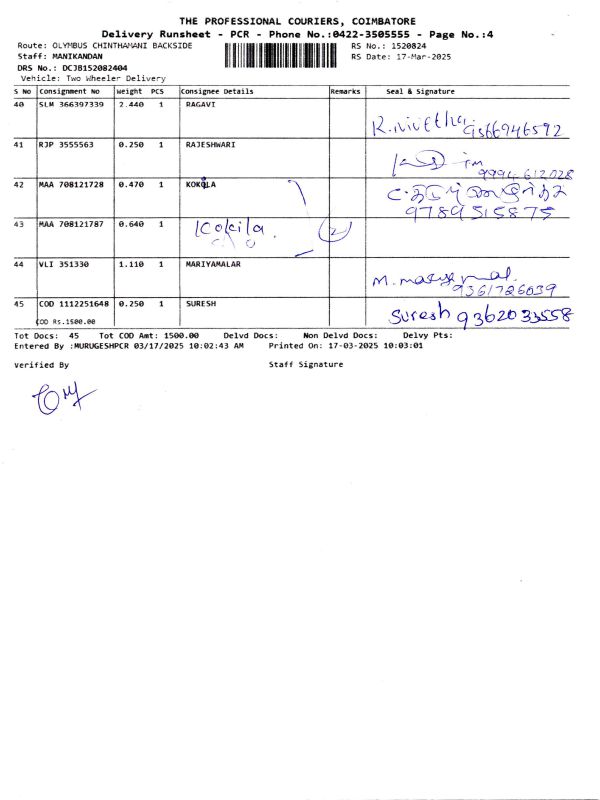 THE PROFESSIONAL COURIERS, COIMBATORE
Delivery Runsheet - PCR - Phone No.:0422-3505555 - Page No.:4
Route: OLYMBUS CHINTHAMANI BACKSIDE RS No.: 1520824
Staff: MANIKANDAN RS Date: 17-Mar-2025
DRS No.: DCJB152082404
Vehicle: Two Wheeler Delivery
S No Consignment No Weight PCS Consignee Details Remarks Seal & Signature
40 SLM 366397339 2.440 1 RAGAVI
R.nivetha 9566946592
41 RJP 3555563 0.250 1 RAJESHWARI
9994612028
42 MAA 708121728 0.470 1 KOKOLA
9789515875
43 MAA 708121787 0.640 1 Kokila. 2
44 VLI 351330 1.110 1 MARIYAMALAR
9361726039
45 COD 1112251648 0.250 1 SURESH Suresh 9362033558
COD Rs.1500.00
Tot Docs: 45 Tot COD Amt: 1500.00 Delvd Docs: Non Delvd Docs: Delvy Pts:
Entered By :MURUGESHPCR 03/17/2025 10:02:43 AM Printed On: 17-03-2025 10:03:01
Verified By Staff Signature